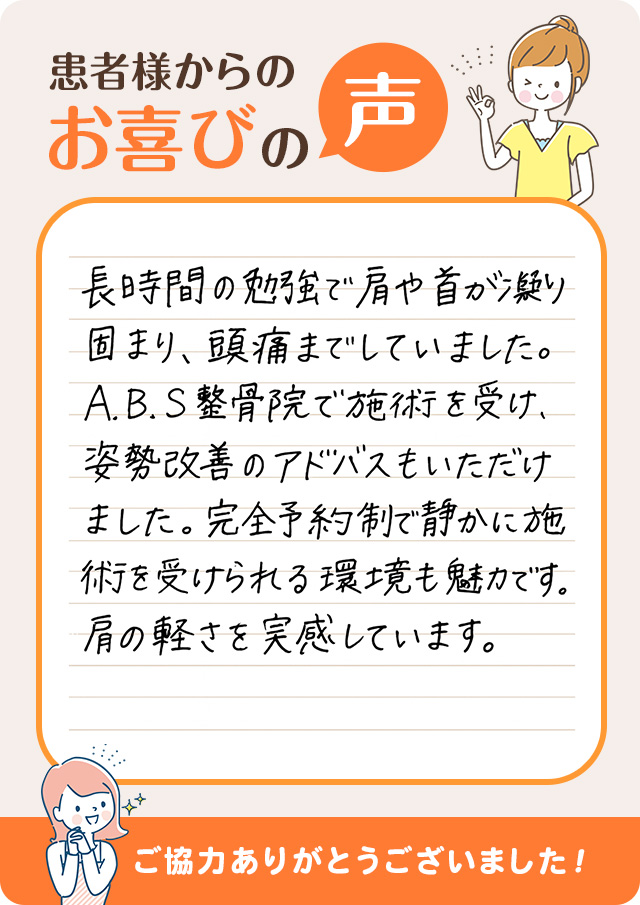 患者様からの
お喜びの声
長時間の勉強で肩や首が凝り
固まり、頭痛までしていました。
A.B.S整骨院で施術を受け、
姿勢改善のアドバスもいただけ
ました。完全予約制で静かに施
術を受けられる環境も魅力です。
肩の軽さを実感しています。
ご協力ありがとうございました!